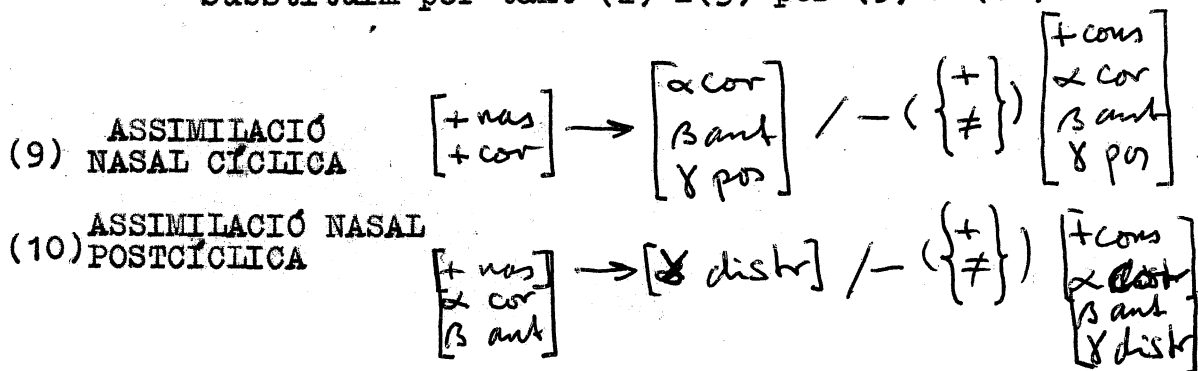 (9) ASSIMILACIÓ NASAL CÍCLICA [+nas +cor] → [α cor β ant γ pos] / — ({+ ≠}) [+cons α cor β ant γ pos]
(10) ASSIMILACIÓ NASAL POSTCÍCLICA [+nas α cor β ant] → [γ distr] / — ({+ ≠}) [+cons α β ant γ distr]